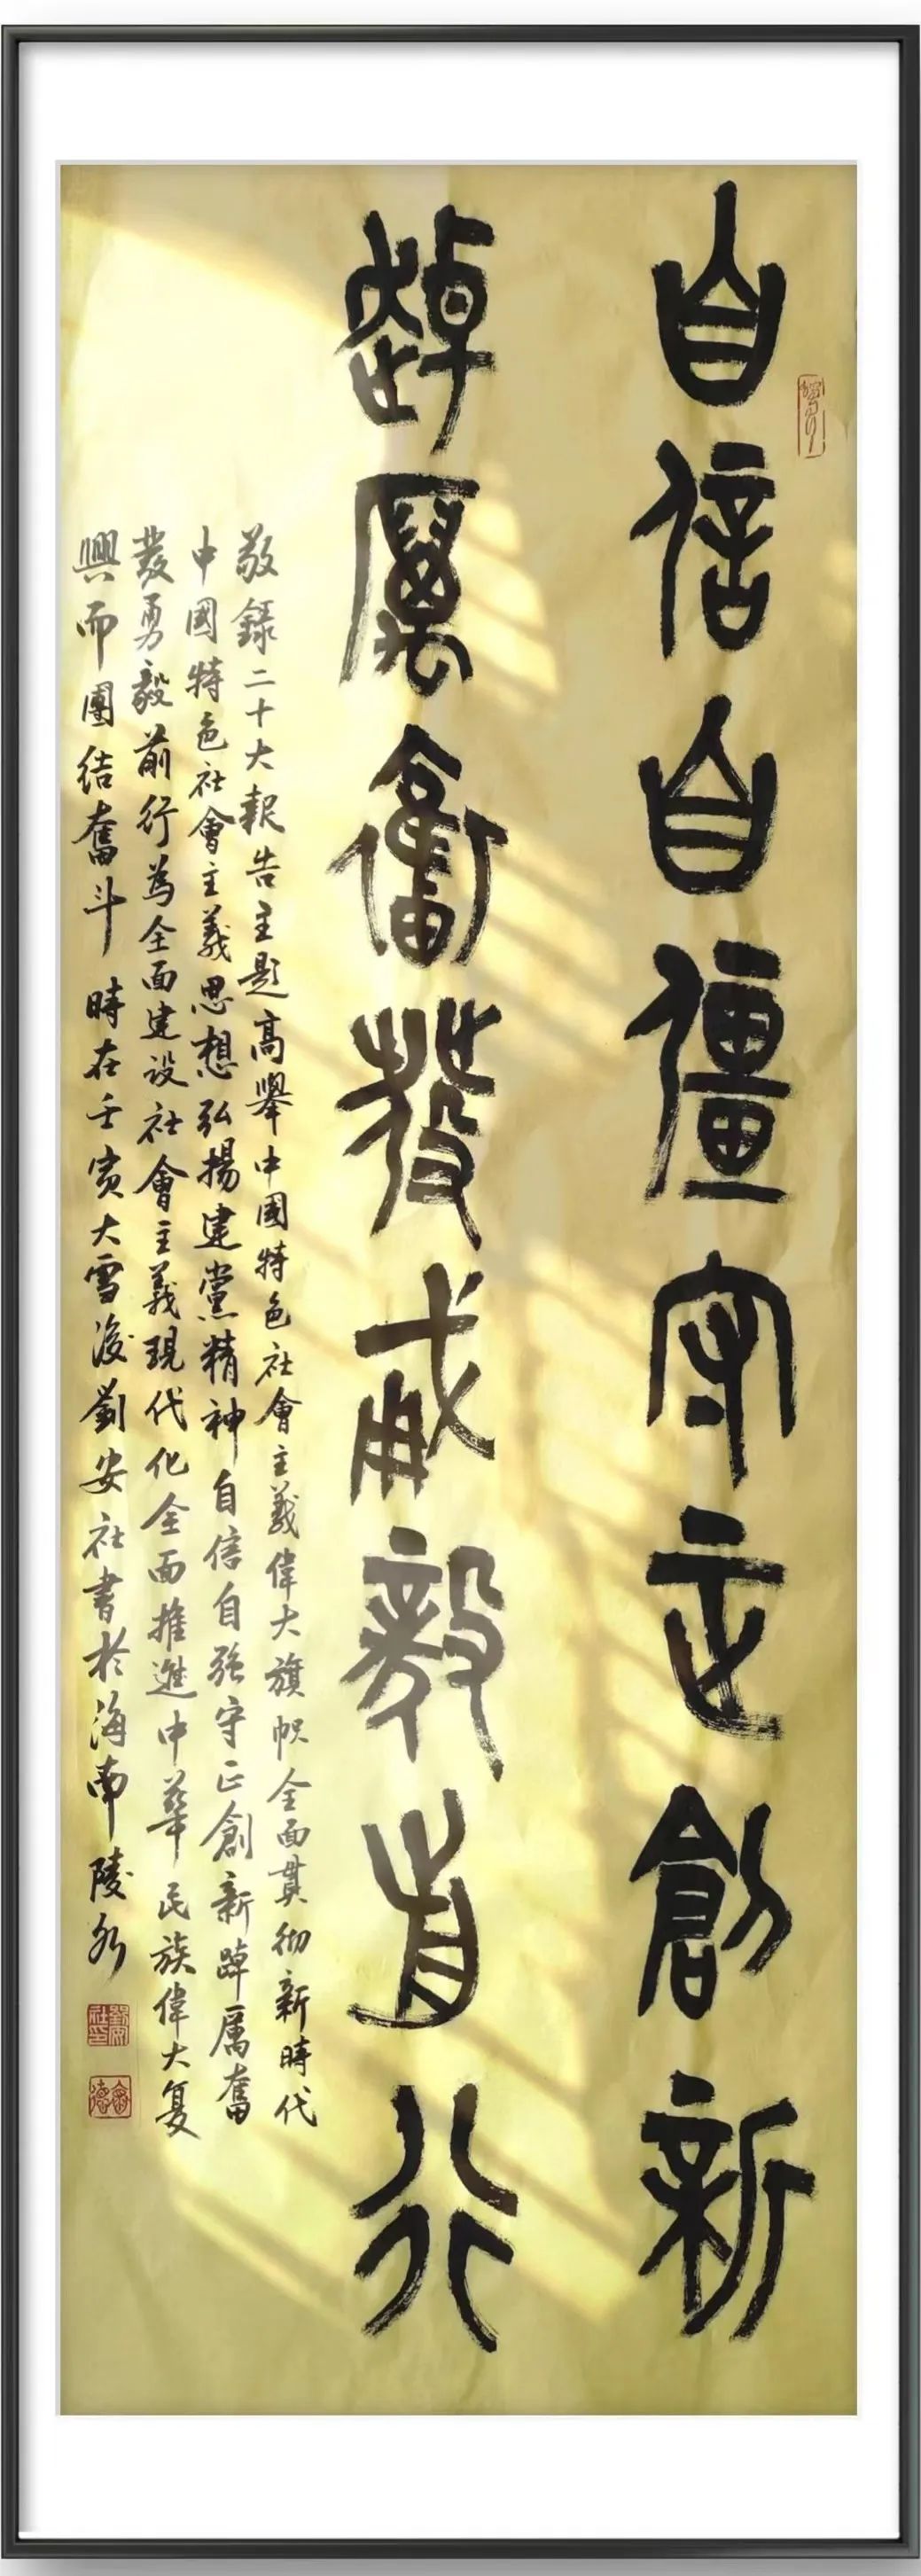 自信自彊守正創新
踔厲奮發勇毅前行
敬録二十大報告主題高舉中國特色社會主義偉大旗帜全面貫彻新時代
中國特色社會主義思想弘揚建黨精神自信自强守正創新踔厲奮
發勇毅前行為全面建設社會主義現代化全面推進中華民族偉大复
興而團结奮斗時在壬寅大雪後劉安社書於海南陵水